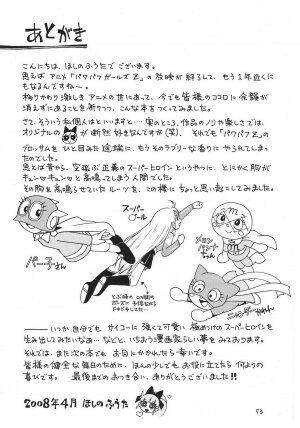 あとがき
こんにちは、ほしのふうたでございます。
思えばアニメ「パワパフガールズZ」の放映が終了して、もう1年近くに
もなるんですね〜。
移りかわり激しきアニメの世にあって、今でも皆様のココロに余韻が
消えずにあることを祈りつつ、こんな本をつくってみました。
さて、そういう私個人はといいますと… 実のところ、作品のノリや楽しさでは、
オリジナルの が断然好きなんですが(笑)、それでも「パワパフZ」の
ブロッサムをひと目みた途端に、もうそのラブリーな香りに やられてしまっ
たのでした。
思えば昔から、空飛ぶ正義のスーパーヒロインというやつに、とにかく胸が
キュンキュンと高鳴ってしまう人間でした。
その胸を高鳴らせていたルーツを、この機にちょっと思い起こしてみました。
スーパー
パー子さん
メロン
パンナ
ちゃん
ニャンダーかめん
——いつか自分でも、サイコーに強くて可愛い極めつけのスーパーヒロインを
生み出してみたいなあ… などと、いちおう漫画家らしい夢をみております。
それでは、また次の本でもお目にかかれたら幸いです。
皆様の健全な毎日のために、ほんの少しでもお役に立てたら何よりの
喜びです。 最後までのおつき合い、ありがとうございました!!
2008年4月 ほしのふうた
73